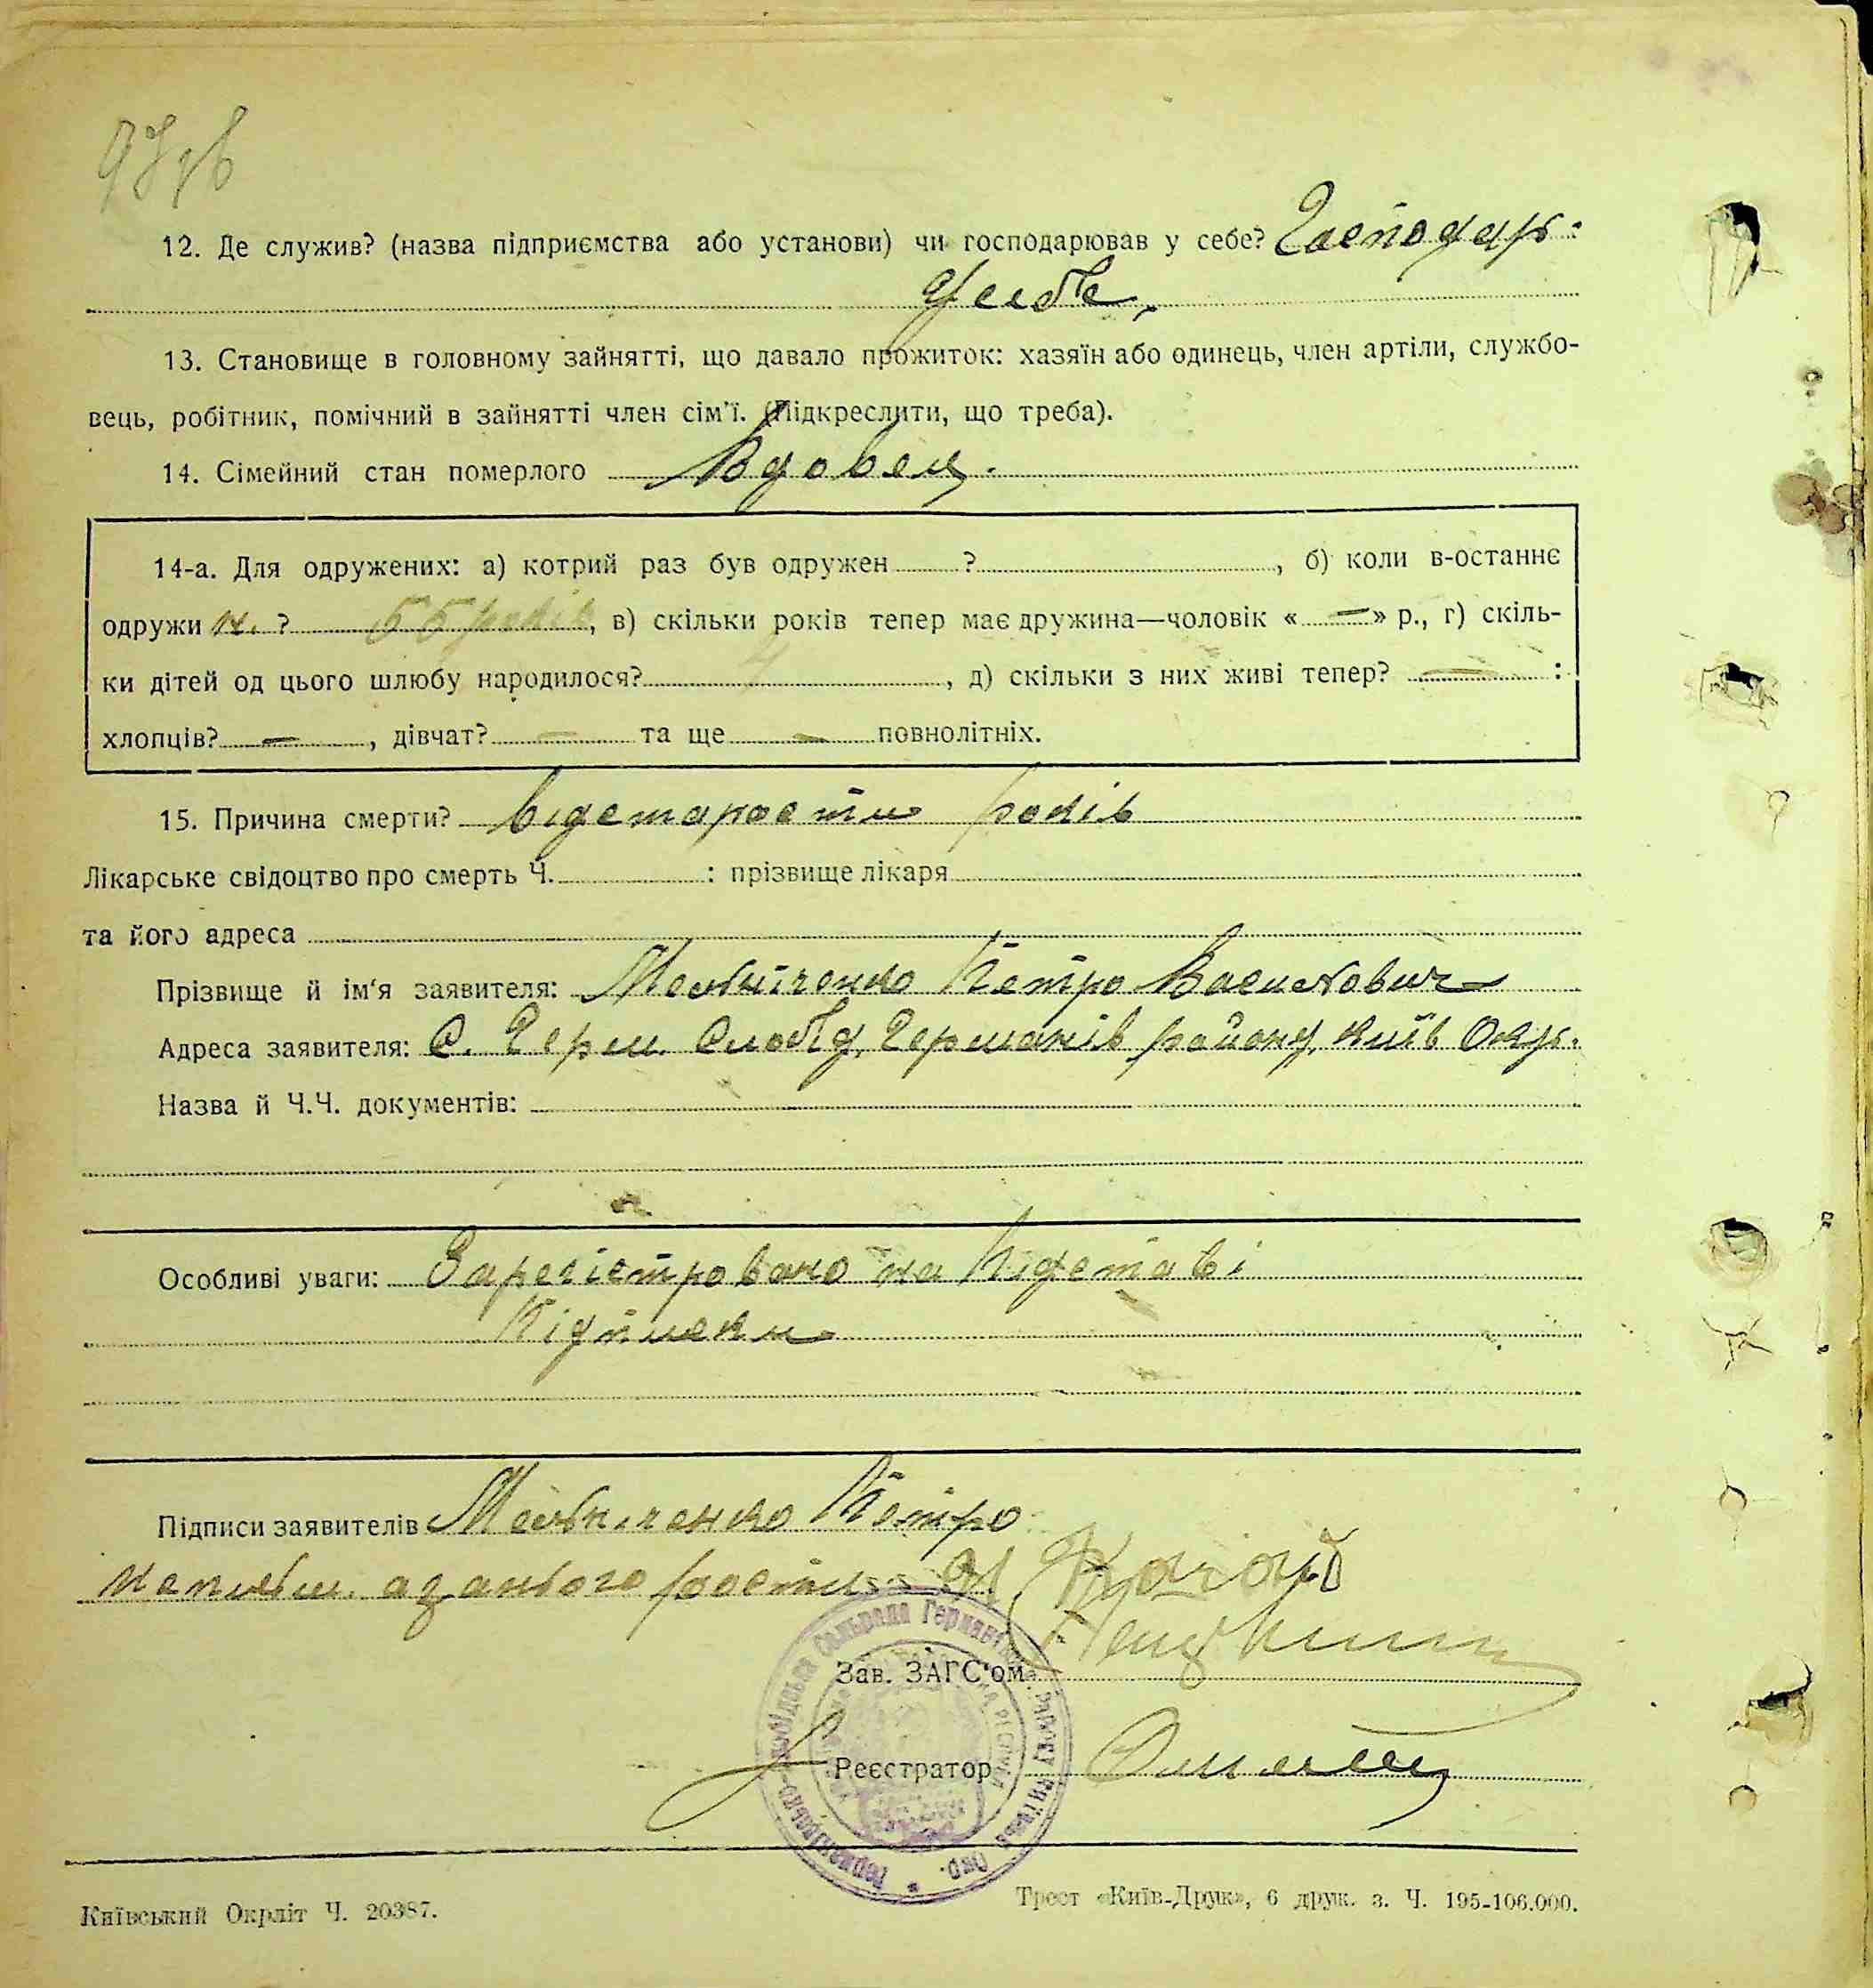 97зв
12. Де служив? (назва підприємства або установи) чи господарював у себе? Господар:
у себе,
13. Становище в головному зайнятті, що давало прожиток: хазяїн або одинець, член артіли, службо-
вець, робітник, помічний в зайнятті член сім'ї. (Підкреслити, що треба).
14. Сімейний стан померлого Вдовец.
14-а. Для одружених: а) котрий раз був одружен ?, б) коли в-останнє
одружи ? 55 років, в) скільки років тепер має дружина—чоловік « — » р., г) скіль-
ки дітей од цього шлюбу народилося? 4, д) скільки з них живі тепер? — :
хлопців? —, дівчат? — та ще — повнолітніх.
15. Причина смерти? від старости років
Лікарське свідоцтво про смерть Ч. : прізвище лікаря
та його адреса
Прізвище й ім'я заявителя: Петро Василович
Адреса заявителя: С. Герм. Слобід, Германів району, Київ Окр.
Назва й Ч.Ч. документів:
Особливі уваги: Зарегістровано на Підставі
Підписки
Підписи заявителів Петро
Зав. ЗАГС'ом
Реєстратор
Германівсько-Слобідська Сельрада Германівськ. району Київськ. Окр.
Київський Окрліт Ч. 20387.
Трест «Київ-Друк», 6 друк. з. Ч. 195-106.000.